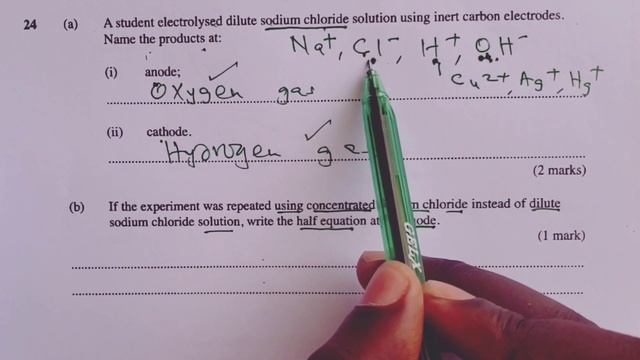 24 (a) A student electrolysed dilute sodium chloride solution using inert carbon electrodes.
Name the products at:
Na+, Cl-, H+, OH-
Cu2+, Ag+, Hg+
(i) anode;
Oxygen gas
(ii) cathode.
Hydrogen
(2 marks)
(b) If the experiment was repeated using concentrated chloride instead of dilute
sodium chloride solution, write the half equation
(1 mark)